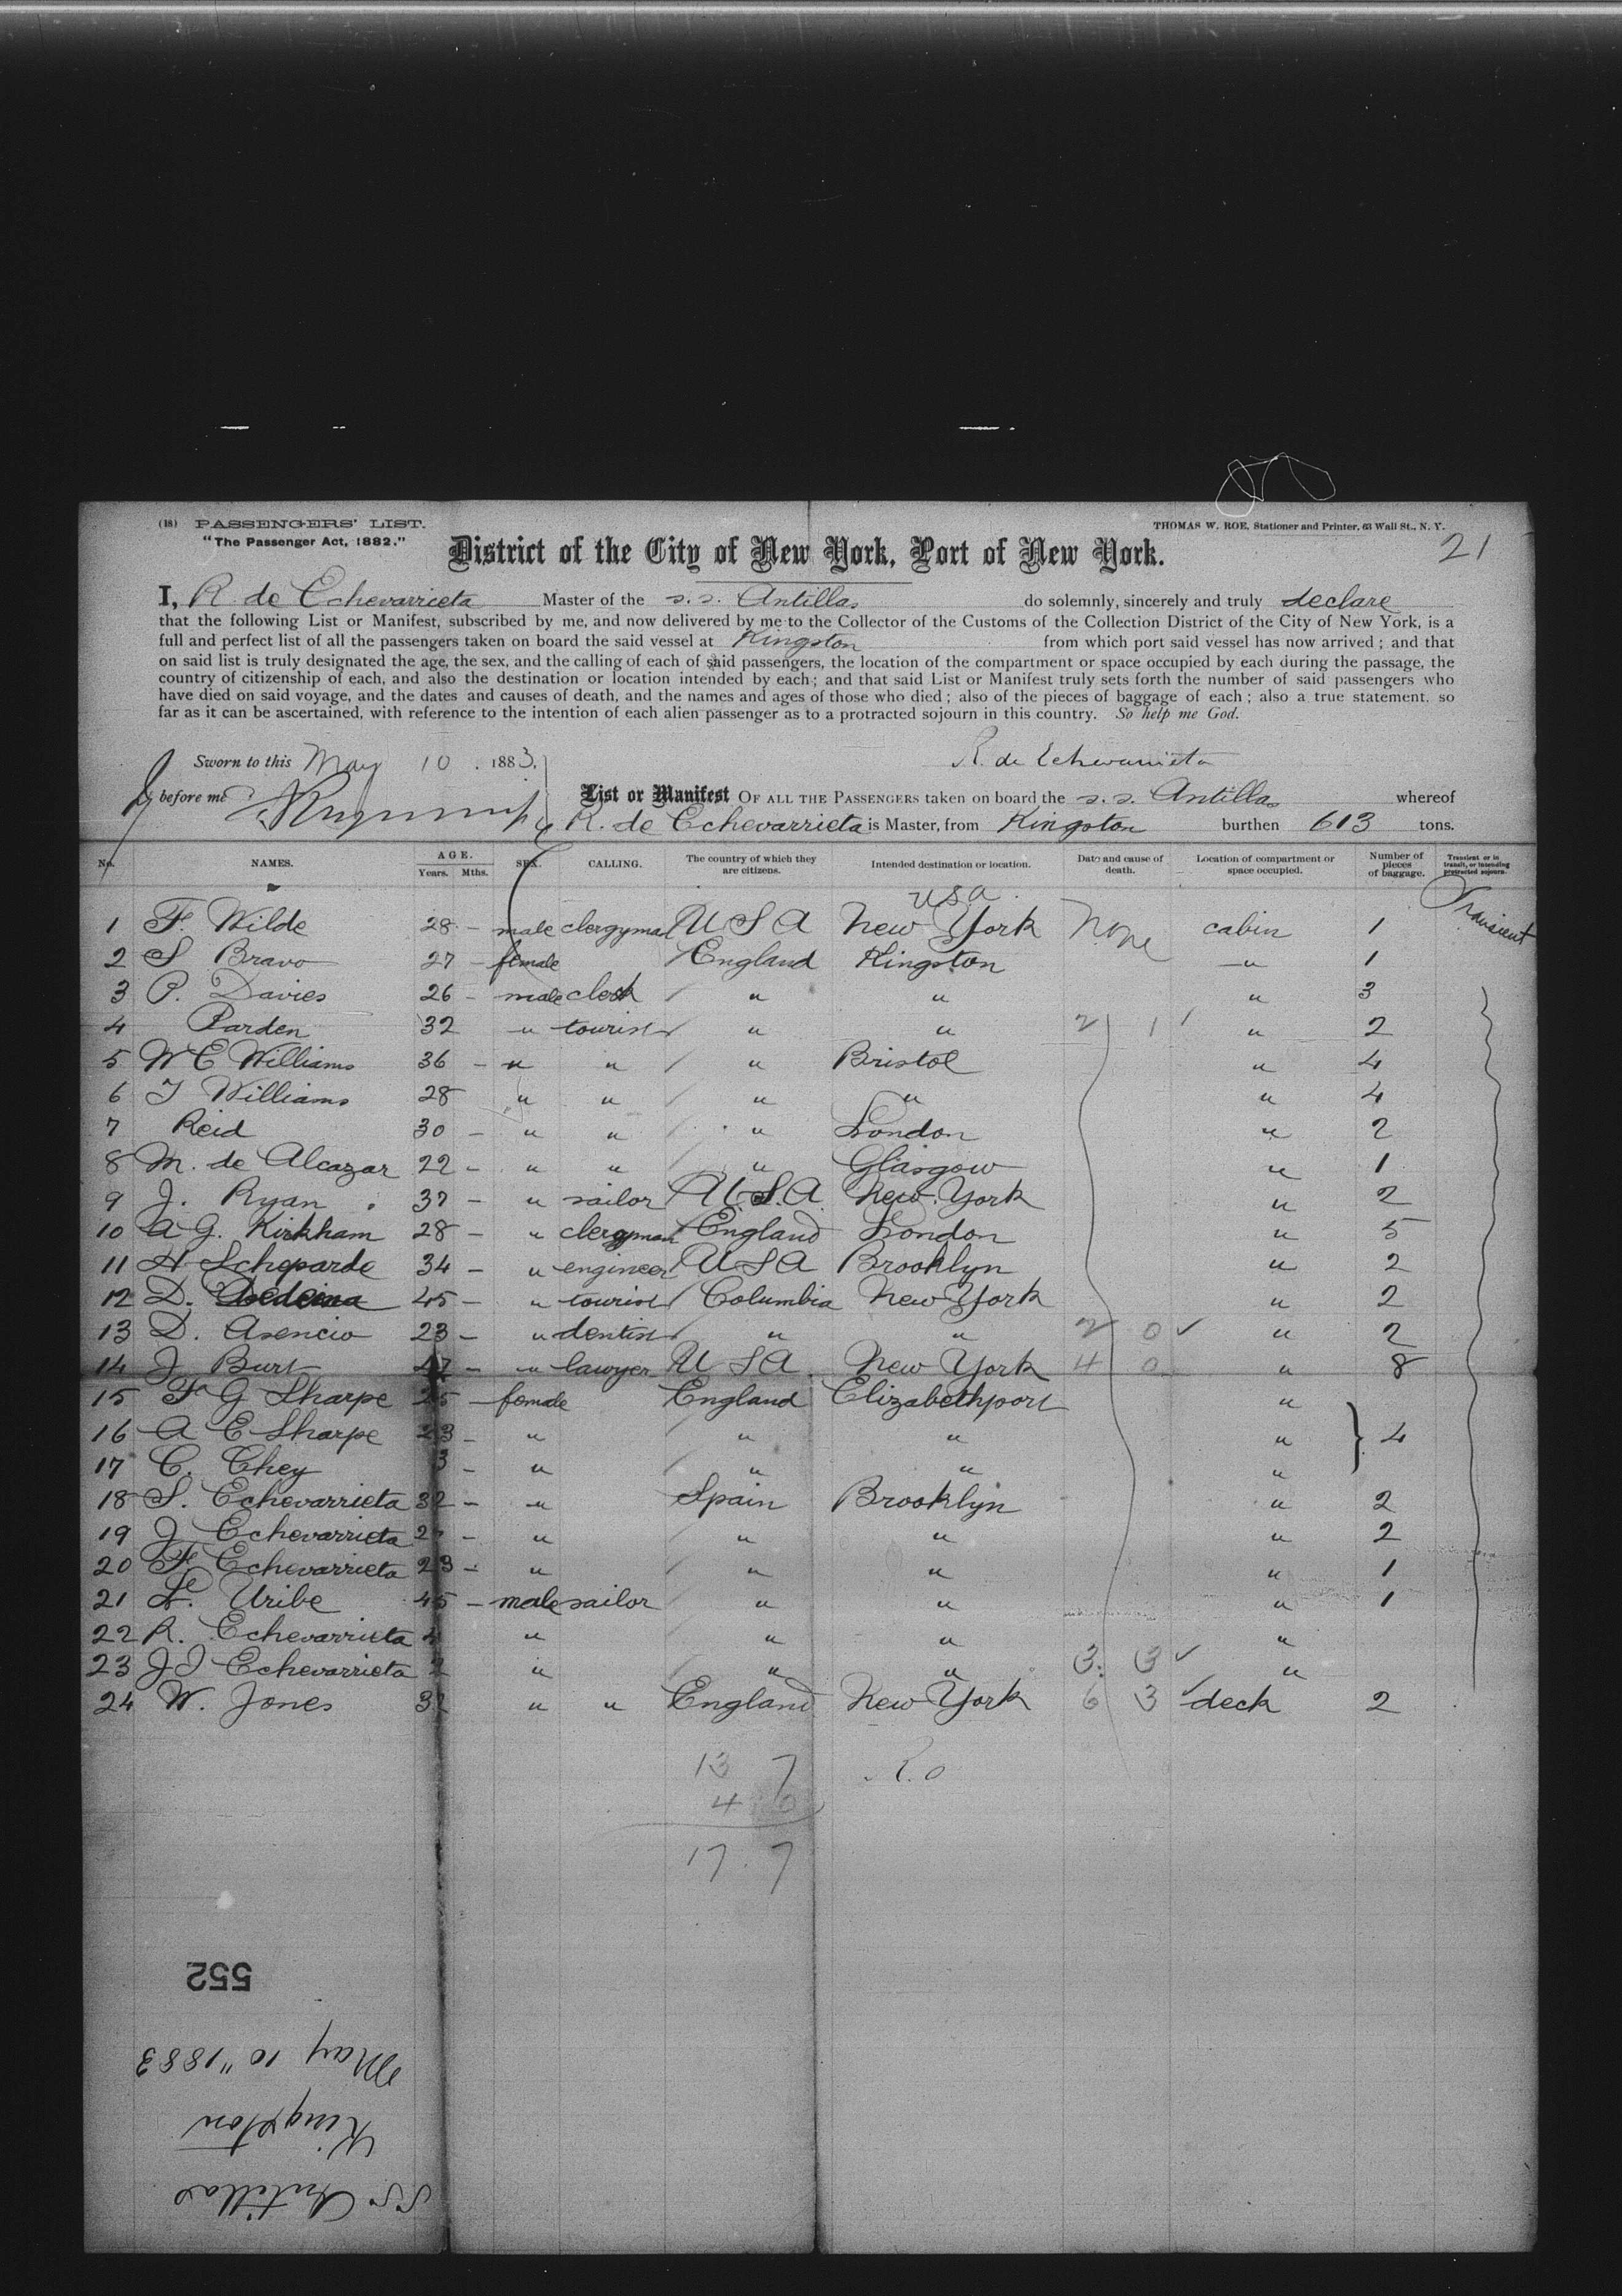 (18) PASSENGERS' LIST.
"The Passenger Act, 1882."
THOMAS W. ROE, Stationer and Printer, 63 Wall St., N. Y.
21
District of the City of New York, Port of New York.
I, R. de Echevarrieta Master of the s.s. Antillas do solemnly, sincerely and truly declare
that the following List or Manifest, subscribed by me, and now delivered by me to the Collector of the Customs of the Collection District of the City of New York, is a
full and perfect list of all the passengers taken on board the said vessel at Kingston from which port said vessel has now arrived ; and that
on said list is truly designated the age, the sex, and the calling of each of said passengers, the location of the compartment or space occupied by each during the passage, the
country of citizenship of each, and also the destination or location intended by each ; and that said List or Manifest truly sets forth the number of said passengers who
have died on said voyage, and the dates and causes of death, and the names and ages of those who died ; also of the pieces of baggage of each ; also a true statement, so
far as it can be ascertained, with reference to the intention of each alien passenger as to a protracted sojourn in this country. So help me God.
Sworn to this May 10. 1883.
R. de Echevarrieta
before me
List or Manifest OF ALL THE PASSENGERS taken on board the s.s. Antillas whereof
R. de Echevarrieta is Master, from Kingston burthen 613 tons.
No. NAMES. AGE. Years. Mths. SEX. CALLING. The country of which they are citizens. Intended destination or location. Date and cause of death. Location of compartment or space occupied. Number of pieces of baggage. Transient or in transit, or intending protracted sojourn.
USA
1 F. Wilde 28 - male clergyman U S A New York None cabin 1 Transient
2 S Bravo 27 - female England Kingston " 1
3 P. Davies 26 - male clerk " " " 3
4 Parden 32 " tourist " " 2 1 " 2
5 W E Williams 36 - " " " Bristol " 4
6 J Williams 28 " " " " " 4
7 Reid 30 - " " " London " 2
8 M. de Alcazar 22 - " " " Glasgow " 1
9 J. Ryan 37 - " sailor U.S.A. New York " 2
10 A G. Kirkham 28 - " clergyman England London " 5
11 H Scheparde 34 - " engineer U S A Brooklyn " 2
12 D. 45 - " tourist Columbia New York " 2
13 D. Asencio 23 - " dentist " " 2 0 ✓ " 2
14 J Burt 47 - " lawyer U S A New York 4 0 " 8
15 F G Sharpe 25 - female England Elizabethport "
16 A E Sharpe 23 - " " " " } 4
17 C. Chey 3 - " " " "
18 S. Echevarrieta 32 - " Spain Brooklyn " 2
19 J Echevarrieta - " " " " 2
20 F. Echevarrieta 23 - " " " " 1
21 L. Uribe 45 - male sailor " " " 1
22 R. Echevarrieta 4 " " " "
23 J I Echevarrieta 2 " " " 3. 3 ✓ "
24 W. Jones " " England New York 6 3 ✓ deck 2
13 7 R.O
4 0
17. 7
552
May 10" 1883
Kingston
SS Antillas